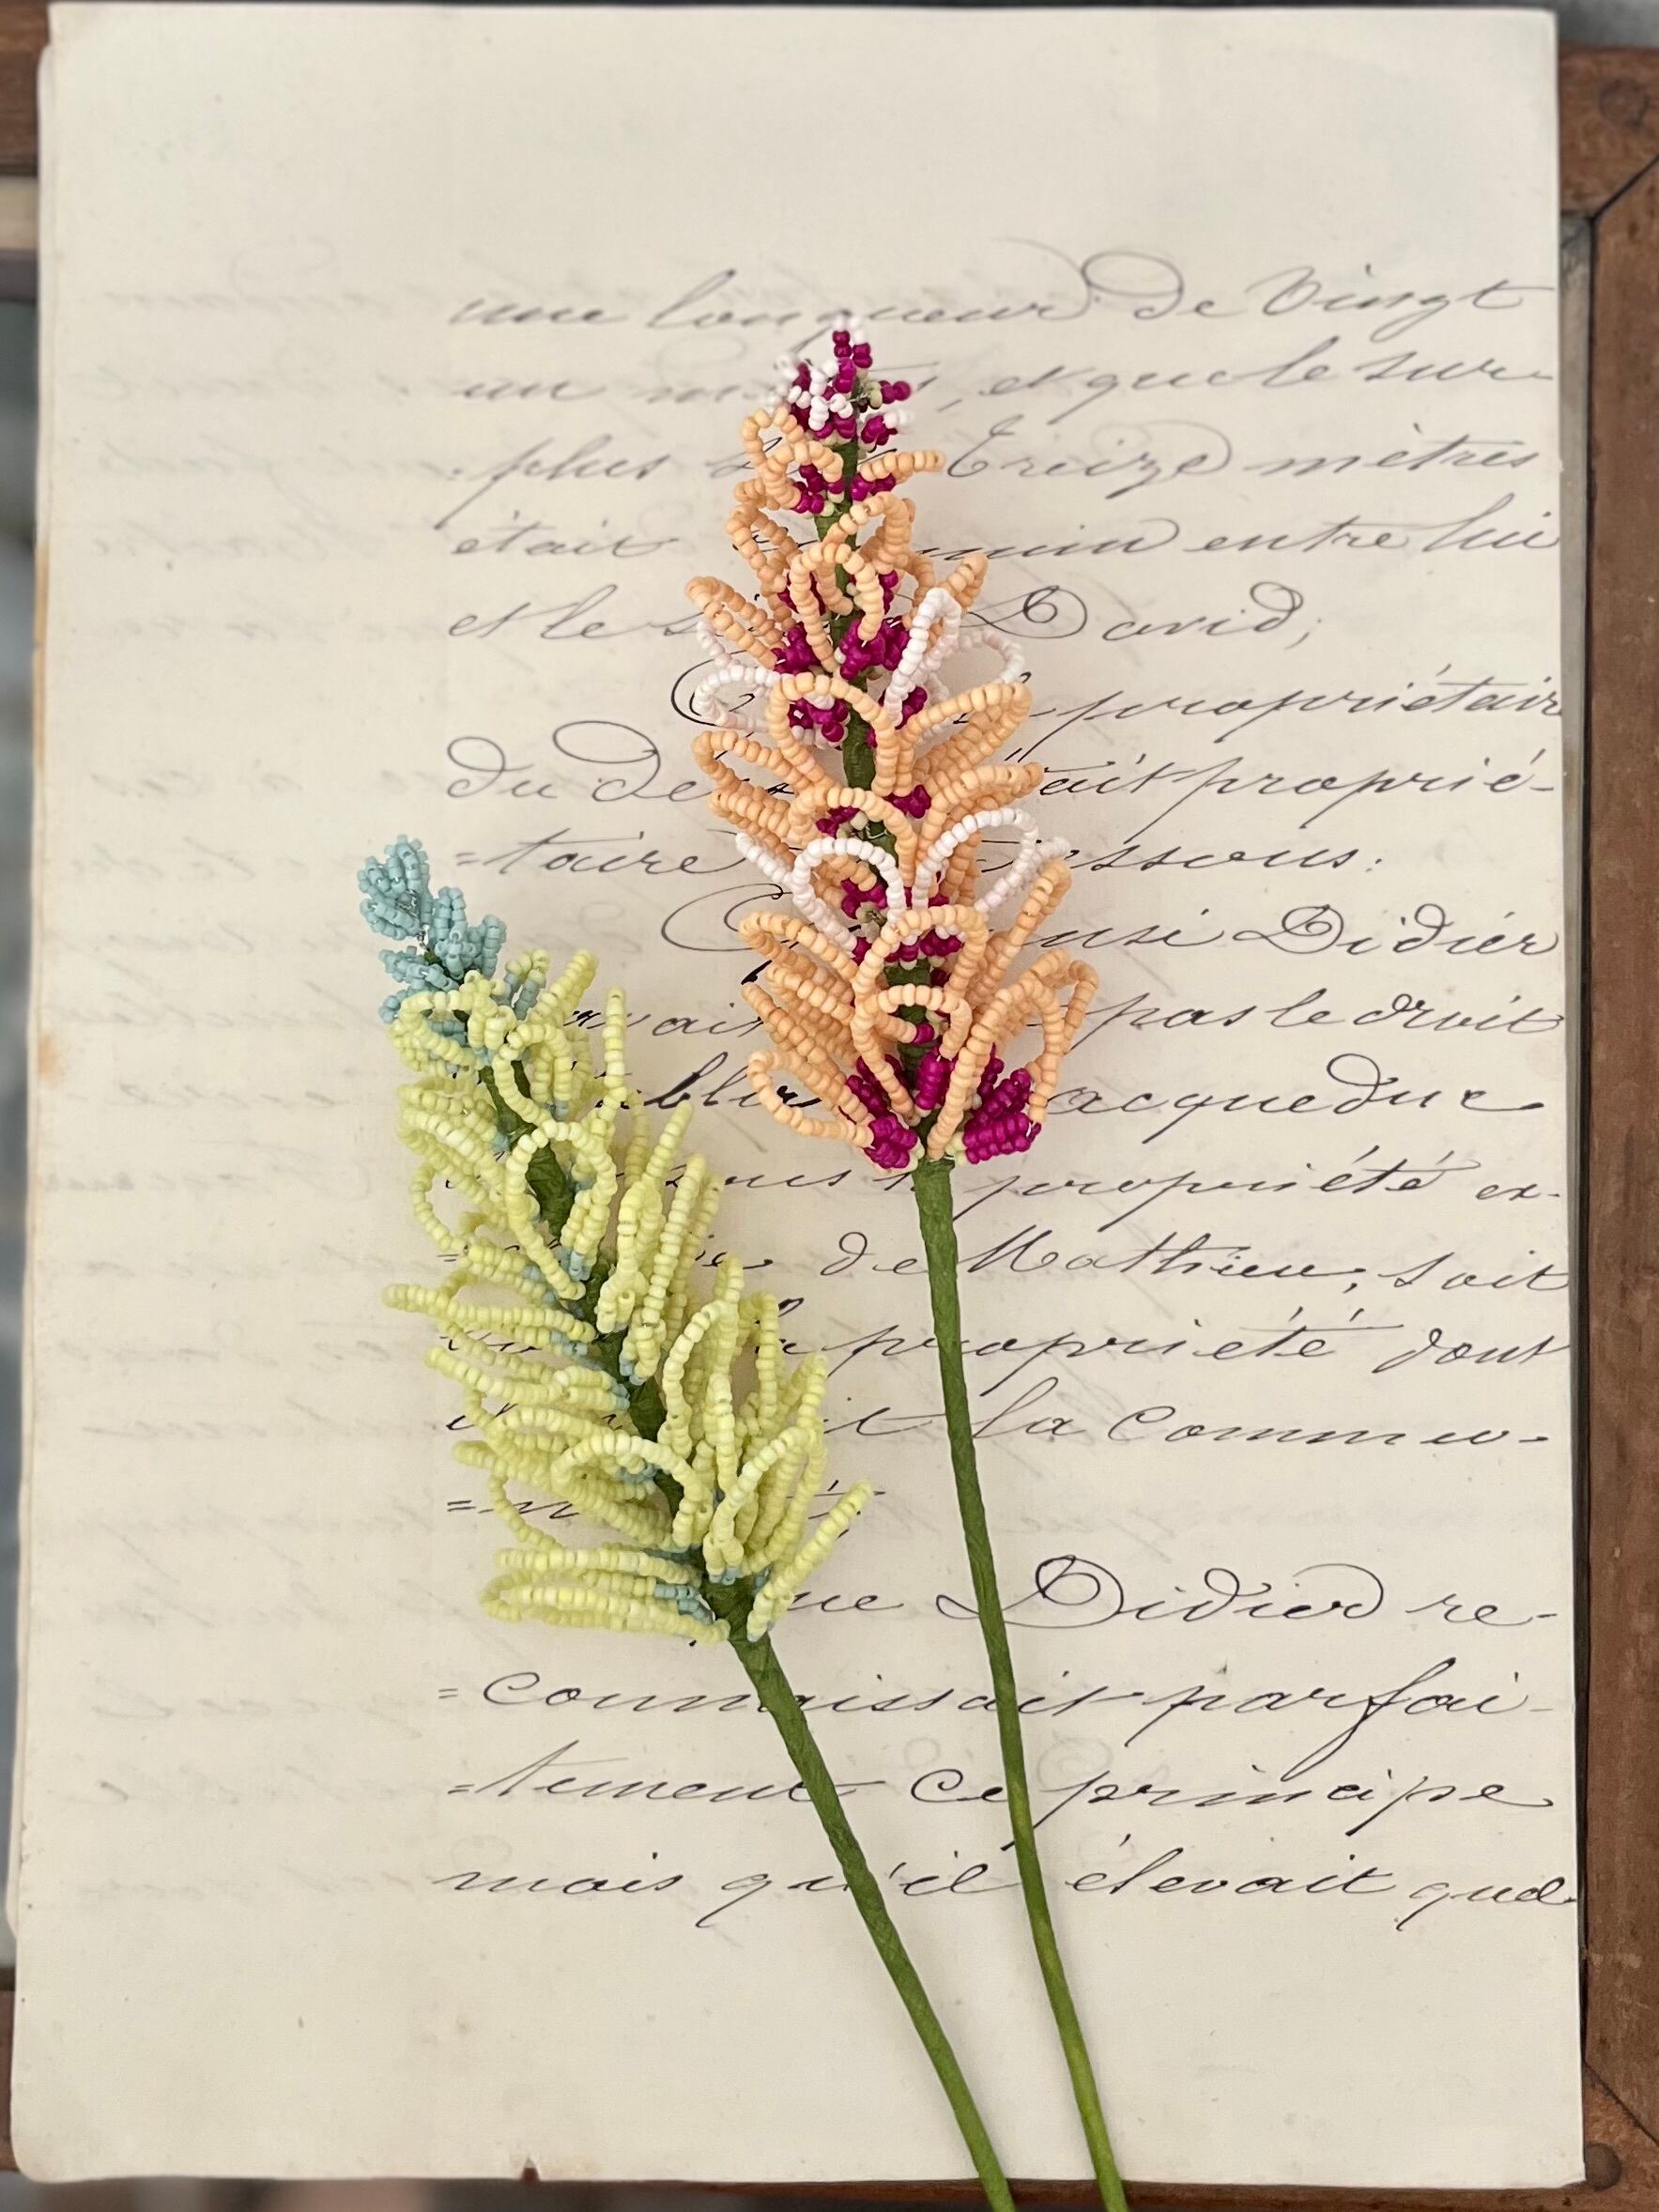 une longueur de Vingt
un, et que le sur-
plus Treize mètres
était entre lui
et le David;
propriétair
du De ait proprié-
=taire essous:
Didier
avait pas le droit
acqueduc
propriété ex-
de Mathieu, soit
la propriété dont
it la Commu-
=n
ue Didier re-
=connaissait parfai-
=tement ce principe
mais qu'il élevait quel